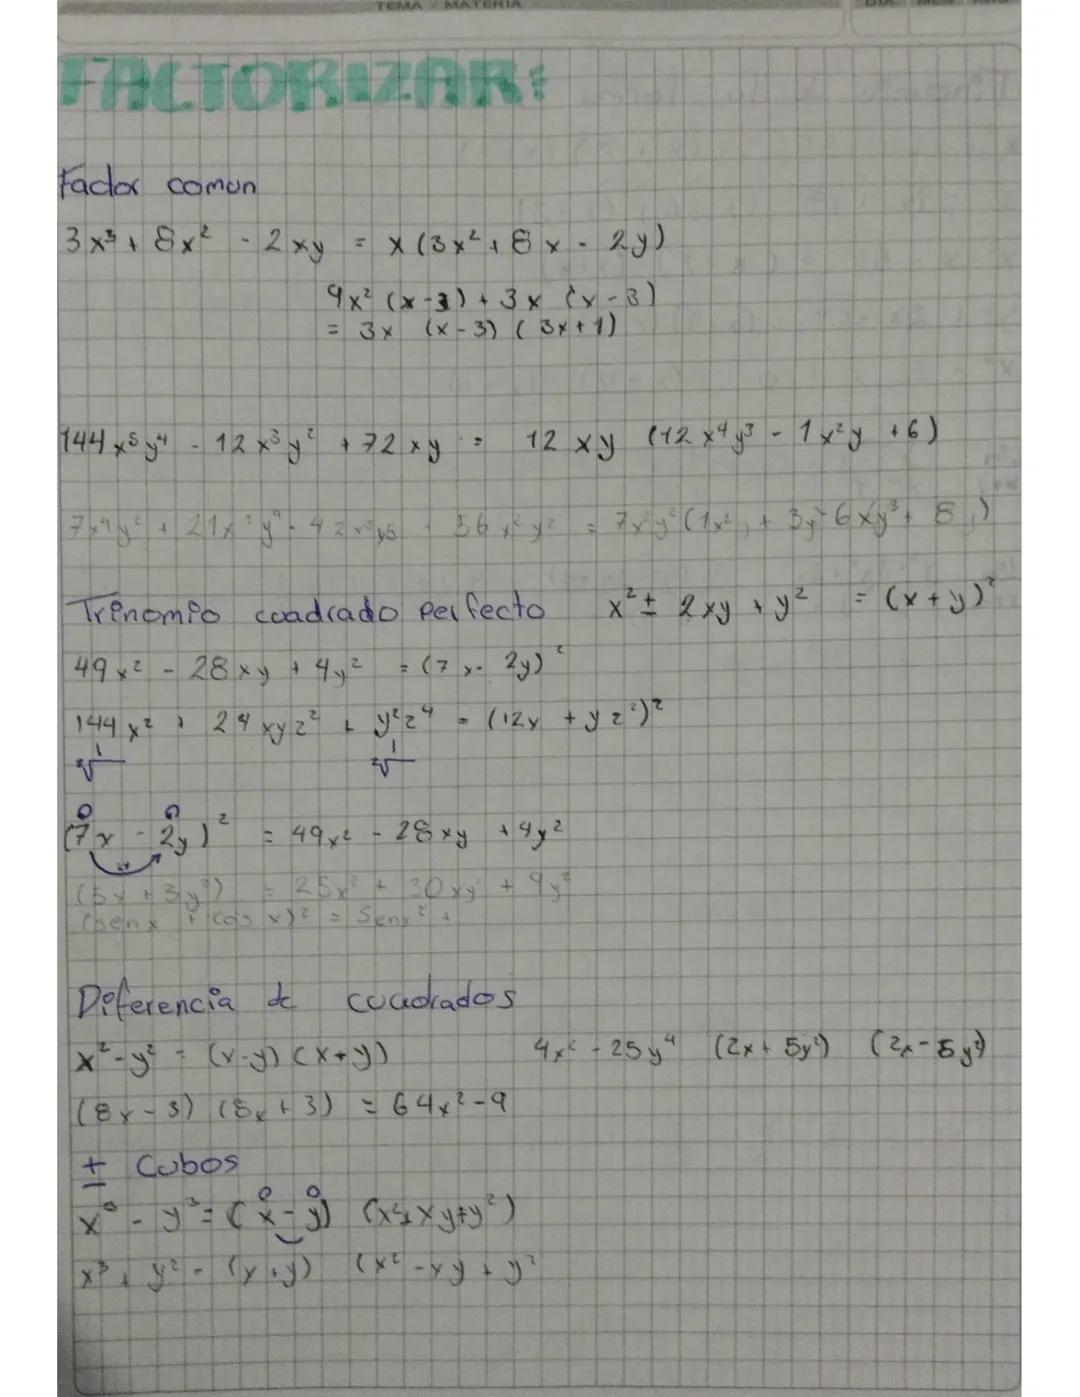 TEMA / MATERIA
FACTORIZAR:
Factor comun
3x³ + 8x² - 2xy = x (3x² + 8x - 2y)
9x² (x-3) + 3x (x-3)
= 3x (x-3) (3x+1)
144x⁵y⁴ - 12x³y² + 72xy = 12xy (12x⁴y³ - 1x²y + 6)
7x⁴y² + 21x²y⁴ - 42x³y⁵ + 56x²y² = 7x²y² (1x² + 3y² - 6xy³ + 8)
Trinomio cuadrado perfecto x² ± 2xy + y² = (x+y)²
49x² - 28xy + 4y² = (7x - 2y)²
144x² + 24xyz² + y²z⁴ = (12x + yz²)²
(7x - 2y)² = 49x² - 28xy + 4y²
(5x + 3y²) = 25x² + 30xy + 9y²
(senx + cos x)² = Senx² +
Diferencia de cuadrados
x² - y² = (x-y) (x+y) 4x² - 25y⁴ (2x + 5y²) (2x - 5y²)
(8x - 3) (8x + 3) = 64x² - 9
± Cubos
x³ - y³ = (x - y) (x² + xy + y²)
x³ + y² = (x+y) (x² - xy + y²